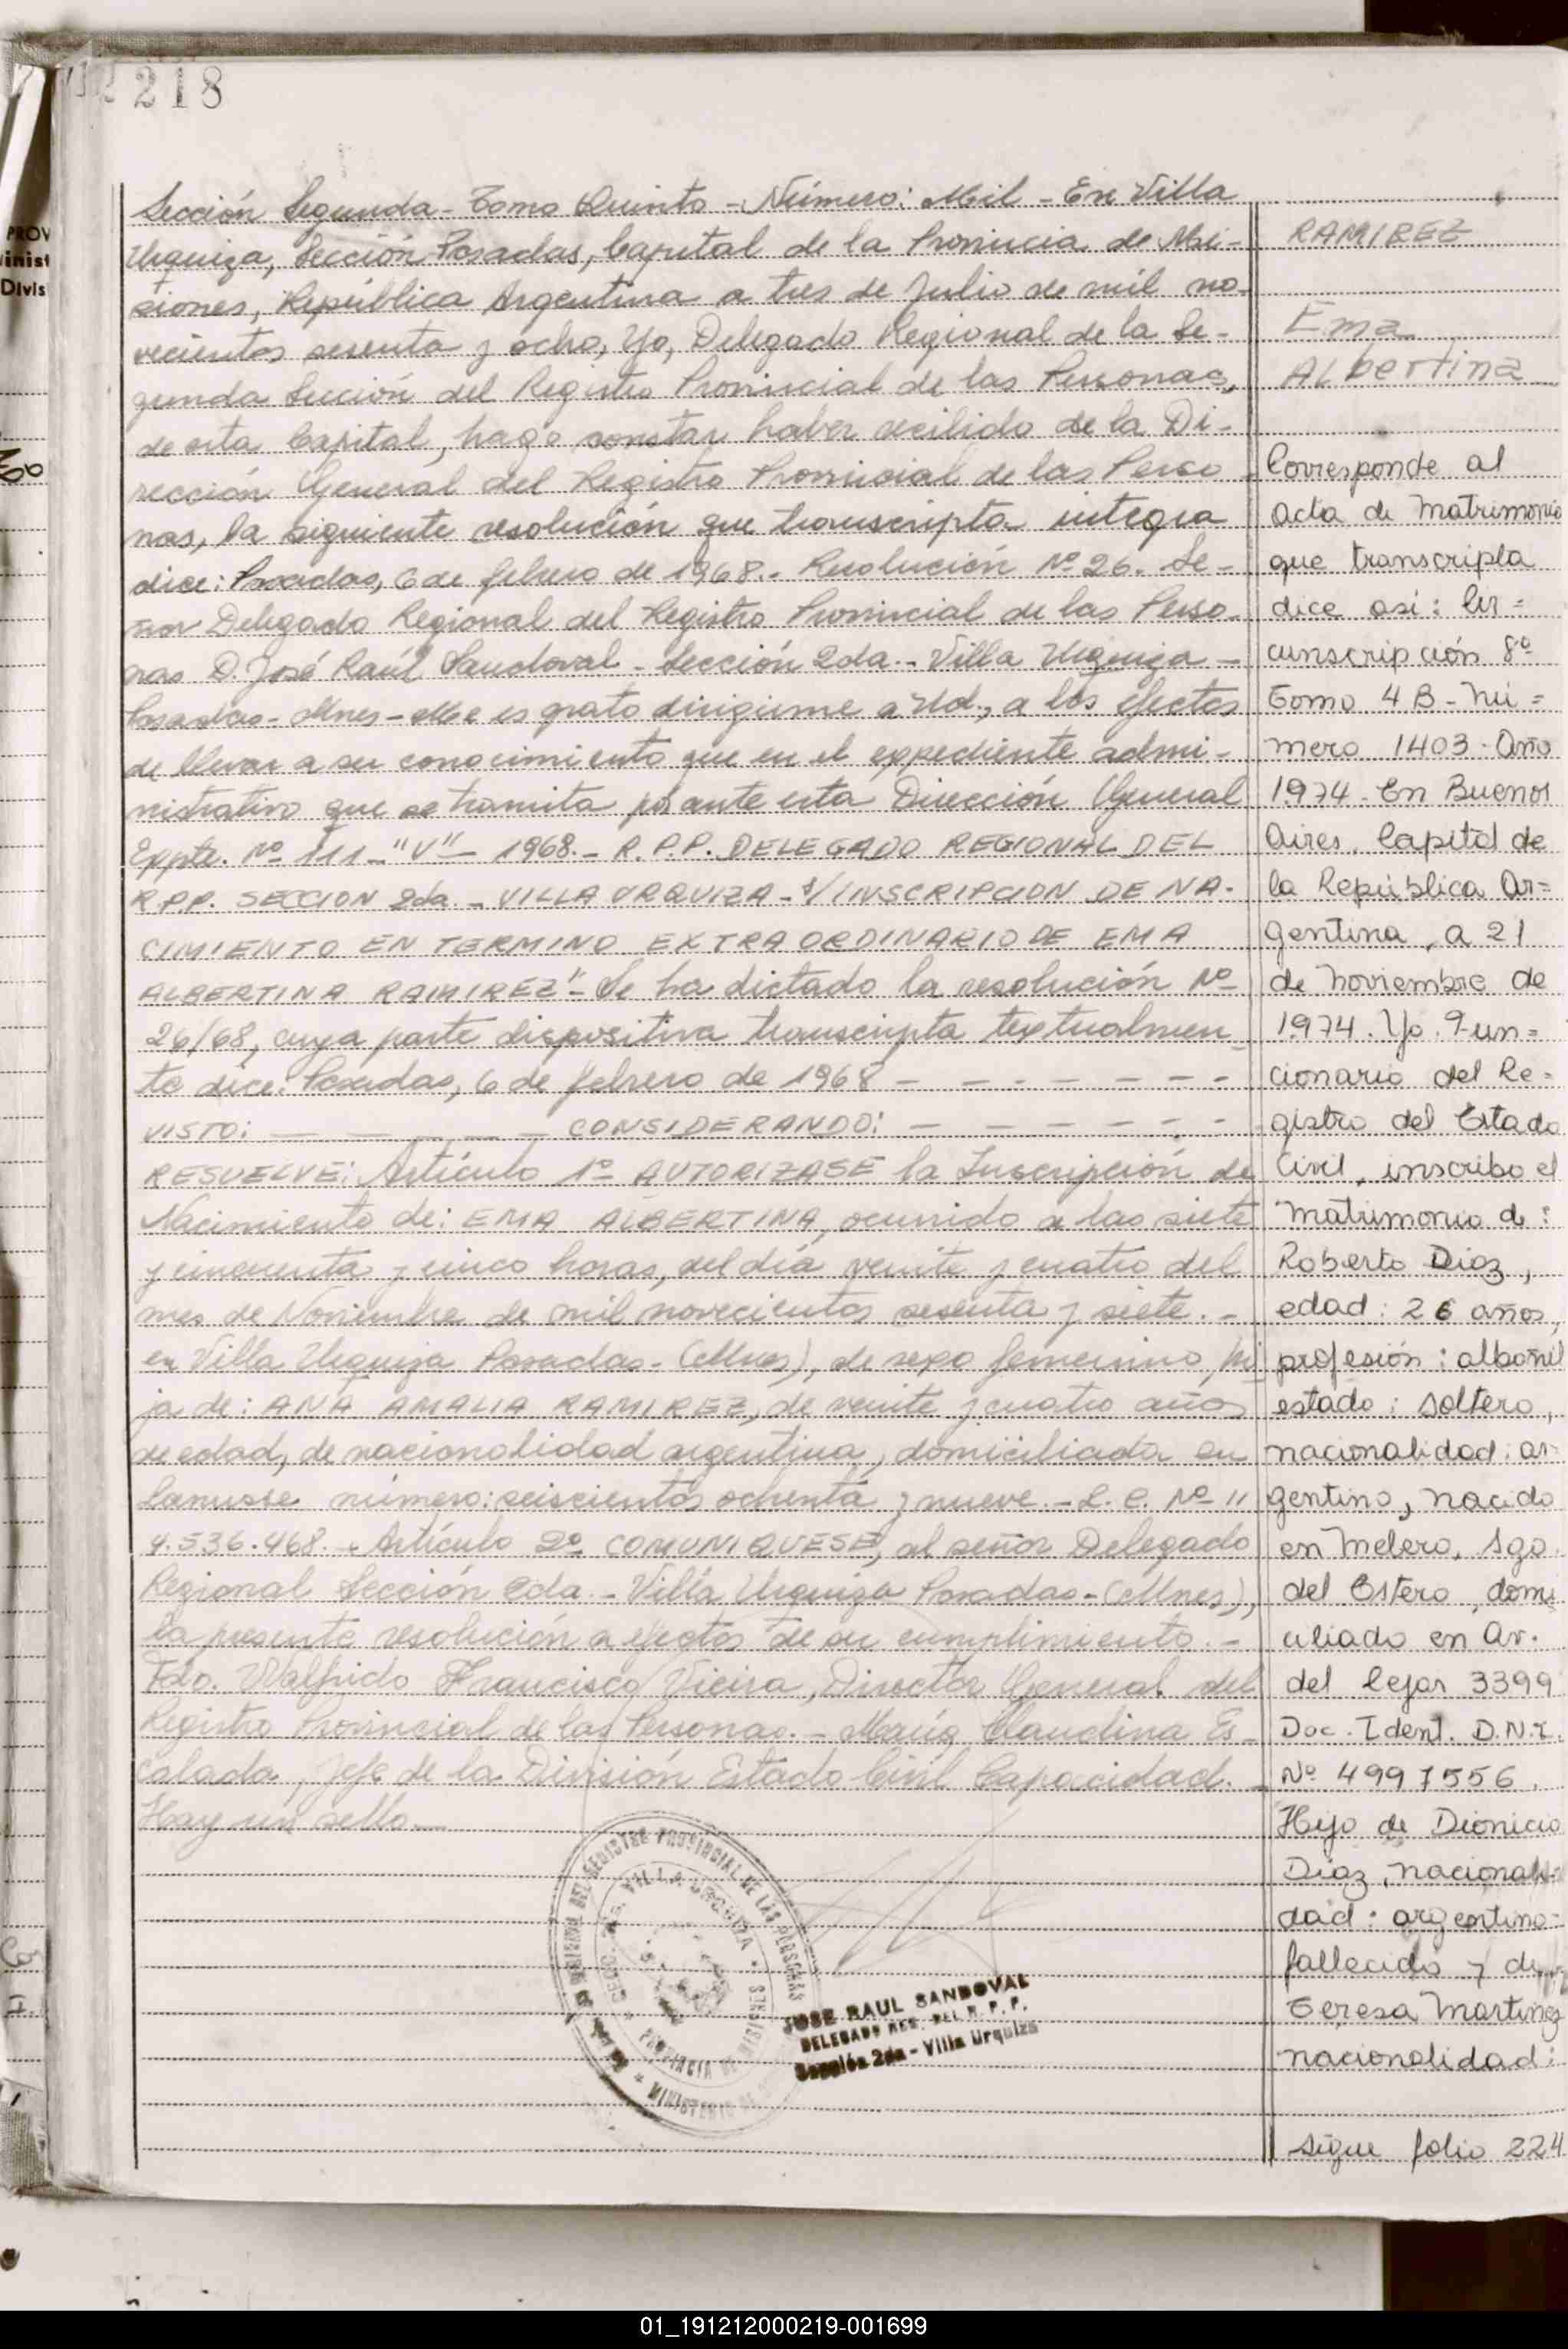 218
Sección Segunda - Tomo Quinto - Número: Mil - En Villa
Urquiza, Sección Posadas, Capital de la Provincia de Mi-
siones, República Argentina a tres de Julio de mil no-
vecientos sesenta y ocho, Yo, Delegado Regional de la Se-
gunda Sección del Registro Provincial de las Personas,
de esta Capital, hago constar haber recibido de la Di-
rección General del Registro Provincial de las Perso-
nas, la siguiente resolución que transcripta integra
dice: Posadas, 6 de febrero de 1968.- Resolución Nº 26. Se-
ñor Delegado Regional del Registro Provincial de las Perso-
nas D. José Raúl Sandoval - Sección 2da.- Villa Urquiza -
Posadas - Mnes - Me es grato dirigirme a Ud., a los efectos
de llevar a su conocimiento que en el expediente admi-
nistrativo que se tramita por ante esta Dirección General
Eppte. Nº 111 - "V" - 1968.- R.P.P. DELEGADO REGIONAL DEL
R.P.P. SECCION 2da. - VILLA URQUIZA - s/INSCRIPCION DE NA-
CIMIENTO EN TERMINO EXTRAORDINARIO DE EMA
ALBERTINA RAMIREZ" - Se ha dictado la resolución Nº
26/68, cuya parte dispositiva transcripta textualmen-
te dice: Posadas, 6 de febrero de 1968 - - - - - - -
VISTO: - - - - - CONSIDERANDO: - - - - - - -
RESUELVE: Artículo 1º AUTORIZASE la Inscripción de
Nacimiento de: EMA ALBERTINA, ocurrido a las siete
y cincuenta y cinco horas, del día veinte y cuatro del
mes de Noviembre de mil novecientos sesenta y siete.-
en Villa Urquiza Posadas - (Mnes), de sexo femenino, hi
ja de: ANA AMALIA RAMIREZ, de veinte y cuatro años
de edad, de nacionalidad argentina, domiciliada en
Lanusse número: seiscientos ochenta y nueve.- L.C. Nº 11
4.536.468.- Artículo 2º COMUNIQUESE, al señor Delegado
Regional Sección 2da.- Villa Urquiza Posadas - (Mnes),
la presente resolución a efectos de su cumplimiento.-
Fdo. Walfrido Francisco Vieira, Director General del
Registro Provincial de las Personas.- María Claudina Es-
calada, Jefe de la División Estado Civil Capacidad.-
Hay un sello.
RAMIREZ
Ema
ALbertina
Corresponde al
acta de Matrimonio
que transcripta
dice así: Cir=
cunscripción 8º
Tomo 4 B - Nú=
mero 1403 - Año
1974 - En Buenos
Aires, Capital de
la República Ar=
gentina, a 21
de Noviembre de
1974. Yo. Fun=
cionario del Re=
gistro del Estado
Civil, inscribo el
Matrimonio de:
Roberto Diaz,
edad: 26 años,
profesión: albañil
estado: soltero,
nacionalidad: ar-
gentino, nacido
en Melero, Sgo.
del Estero, domi
ciliado en Av.
del Cejas 3399
Doc. Ident. D.N.I.
Nº 4997556.
Hijo de Dionicio
Diaz, nacionali-
dad: argentino-
fallecido y de
Teresa Martinez
nacionalidad:
Sigue folio 224
REGISTRO PROVINCIAL DE LAS PERSONAS
VILLA URQUIZA
JOSE RAUL SANDOVAL
DELEGADO REG. DEL R. P. P.
Sección 2da - Villa Urquiza
PROV
inist
Divis
01_191212000219-001699